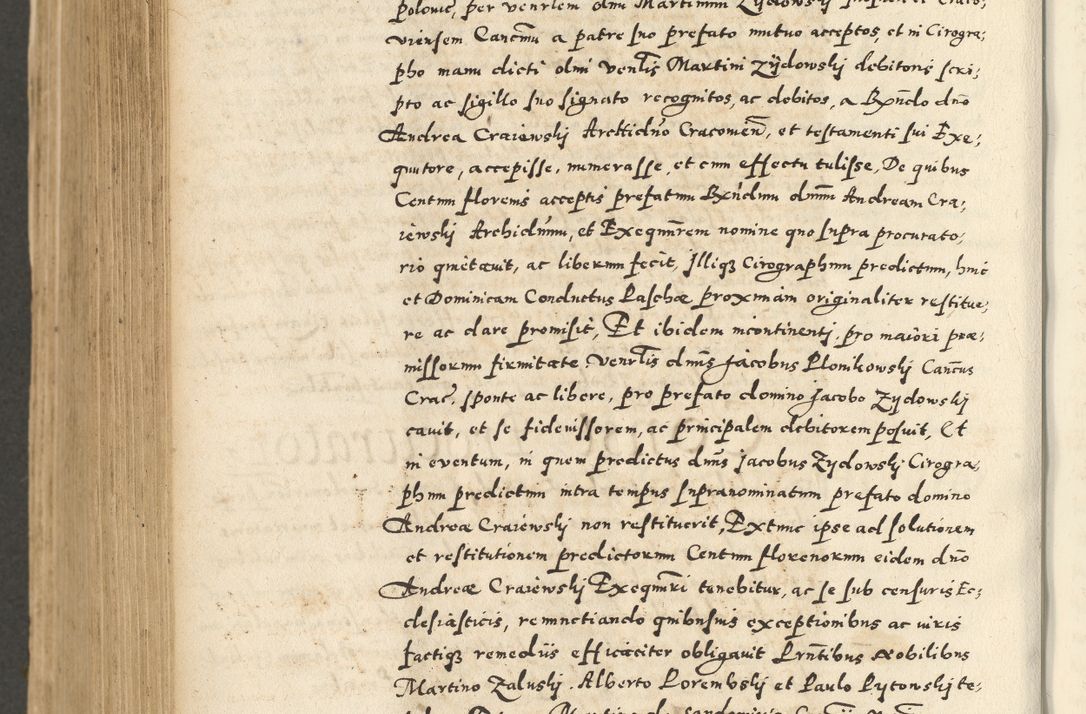 polonic, per venrlem dnu Martinum Zydowski
viensem Cancnu a patre suo prefato mutuo acceptos, et in Cirogra,
pho manu dicti olmi venlis Martini Zÿdowskj debitoris scri,
pto ac sigillo suo signato recognitos, ac debitos, a Rxndo dno
Andrea Craiewskj Archidno Cracouien, et testamenti sui Exe,
quutore, accepisse, numerasse, et cum effectu tulisse, De quibus
Centum florenis acceptis prefatum Rxndum dnum Andream Cra,
iewskj Archidnum, et Exequutrem nomine quo supra procurato,
rio quitauit, ac liberum fecit, Illiq3 Cirographum predictum, hinc
et Dominicam Conductus Paschæ proximam originaliter restitue,
re ac dare promisit, Et ibidem incontinenti, pro maiori præ,
missorum firmitate, Venrlis dnus Jacobus Plomkowskj Cancus
Crac, sponte ac libere, pro prefato domino Jacobo Zydowskj
cauit, et se fideiussorem, ac principalem debitorem posuit, Et
in euentum, in quem predictus dnus Jacobus Zydowskj Cirogra,
phum predictum intra tempus supranominatum prefato domino
Andreæ Craiewskj non restituerit, Extunc ipse ad solutionem
et restitutionem predictorum Centum florenorum eidem dno
Andreæ Craiewskj Exequutri tenebitur, ac se sub censuris Ec,
clesiasticis, renunctiando quibusuis exceptionibus ac iuris
factiq3 remediis efficaciter obligauit Prntibus Nobilibus
Martino Zaluskj, Alberto Porembskj et Paulo Pytowskj te,